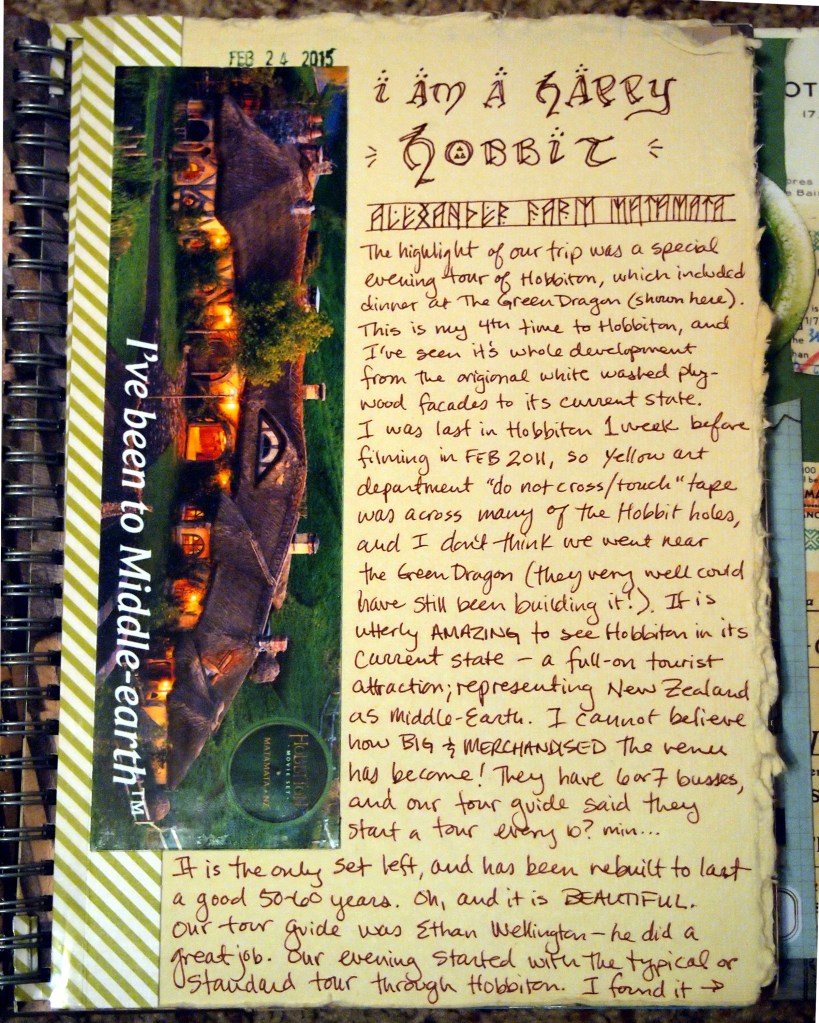 FEB 24 2015
I AM A HAPPY
HOBBIT
ALEXANDER FARM MATAMATA
The highlight of our trip was a special
evening tour of Hobbiton, which included
dinner at The Green Dragon (shown here).
This is my 4th time to Hobbiton, and
I've seen it's whole development
from the origional white washed ply-
wood facades to its current state.
I was last in Hobbiton 1 week before
filming in FEB 2011, so yellow art
department "do not cross/touch" tape
was across many of the Hobbit holes,
and I don't think we went near
the Green Dragon (they very well could
have still been building it!). It is
utterly AMAZING to see Hobbiton in its
current state – a full-on tourist
attraction; representing New Zealand
as Middle-Earth. I cannot believe
how BIG & MERCHANDISED the venue
has become! They have 6 or 7 busses,
and our tour guide said they
start a tour every 10? min...
It is the only set left, and has been rebuilt to last
a good 50-60 years. Oh, and it is BEAUTIFUL.
Our tour guide was Ethan Wellington – he did a
great job. Our evening started with the typical or
standard tour through Hobbiton. I found it →
I've been to Middle-earth™
HOBBITON
MOVIE SET
MATAMATA, NZ